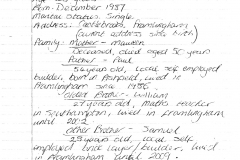 Born: December 1987
Marital Status: Single
Address: Framlingham,
(current address since birth)
Family: Mother - Maureen
Deceased, died aged 50 years
Father - Paul
56 year old, local self employed
builder, born in Ashfield, lived in
Framlingham since 1986
Older Brother - William
27 years old, maths teacher
in Southampton, lived in Framlingham
until 2002
Other Brother - Samuel
25 years old, local self
employed brick layer/builder, lived
in Framlingham until 2009.